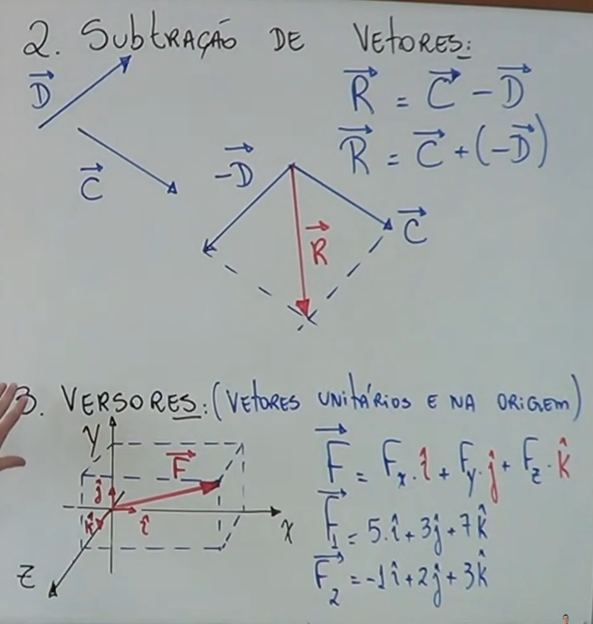 2. SUBTRAÇÃO DE VETORES:
D⃗
C⃗
R⃗ = C⃗ - D⃗
R⃗ = C⃗ + (-D⃗)
-D⃗
R⃗
C⃗
3. VERSORES: (VETORES UNITÁRIOS E NA ORIGEM)
y
F⃗
ĵ
k̂
î
x
z
F⃗ = Fx.î + Fy.ĵ + Fz.k̂
F⃗1 = 5.î + 3ĵ + 7k̂
F⃗2 = -1î + 2ĵ + 3k̂